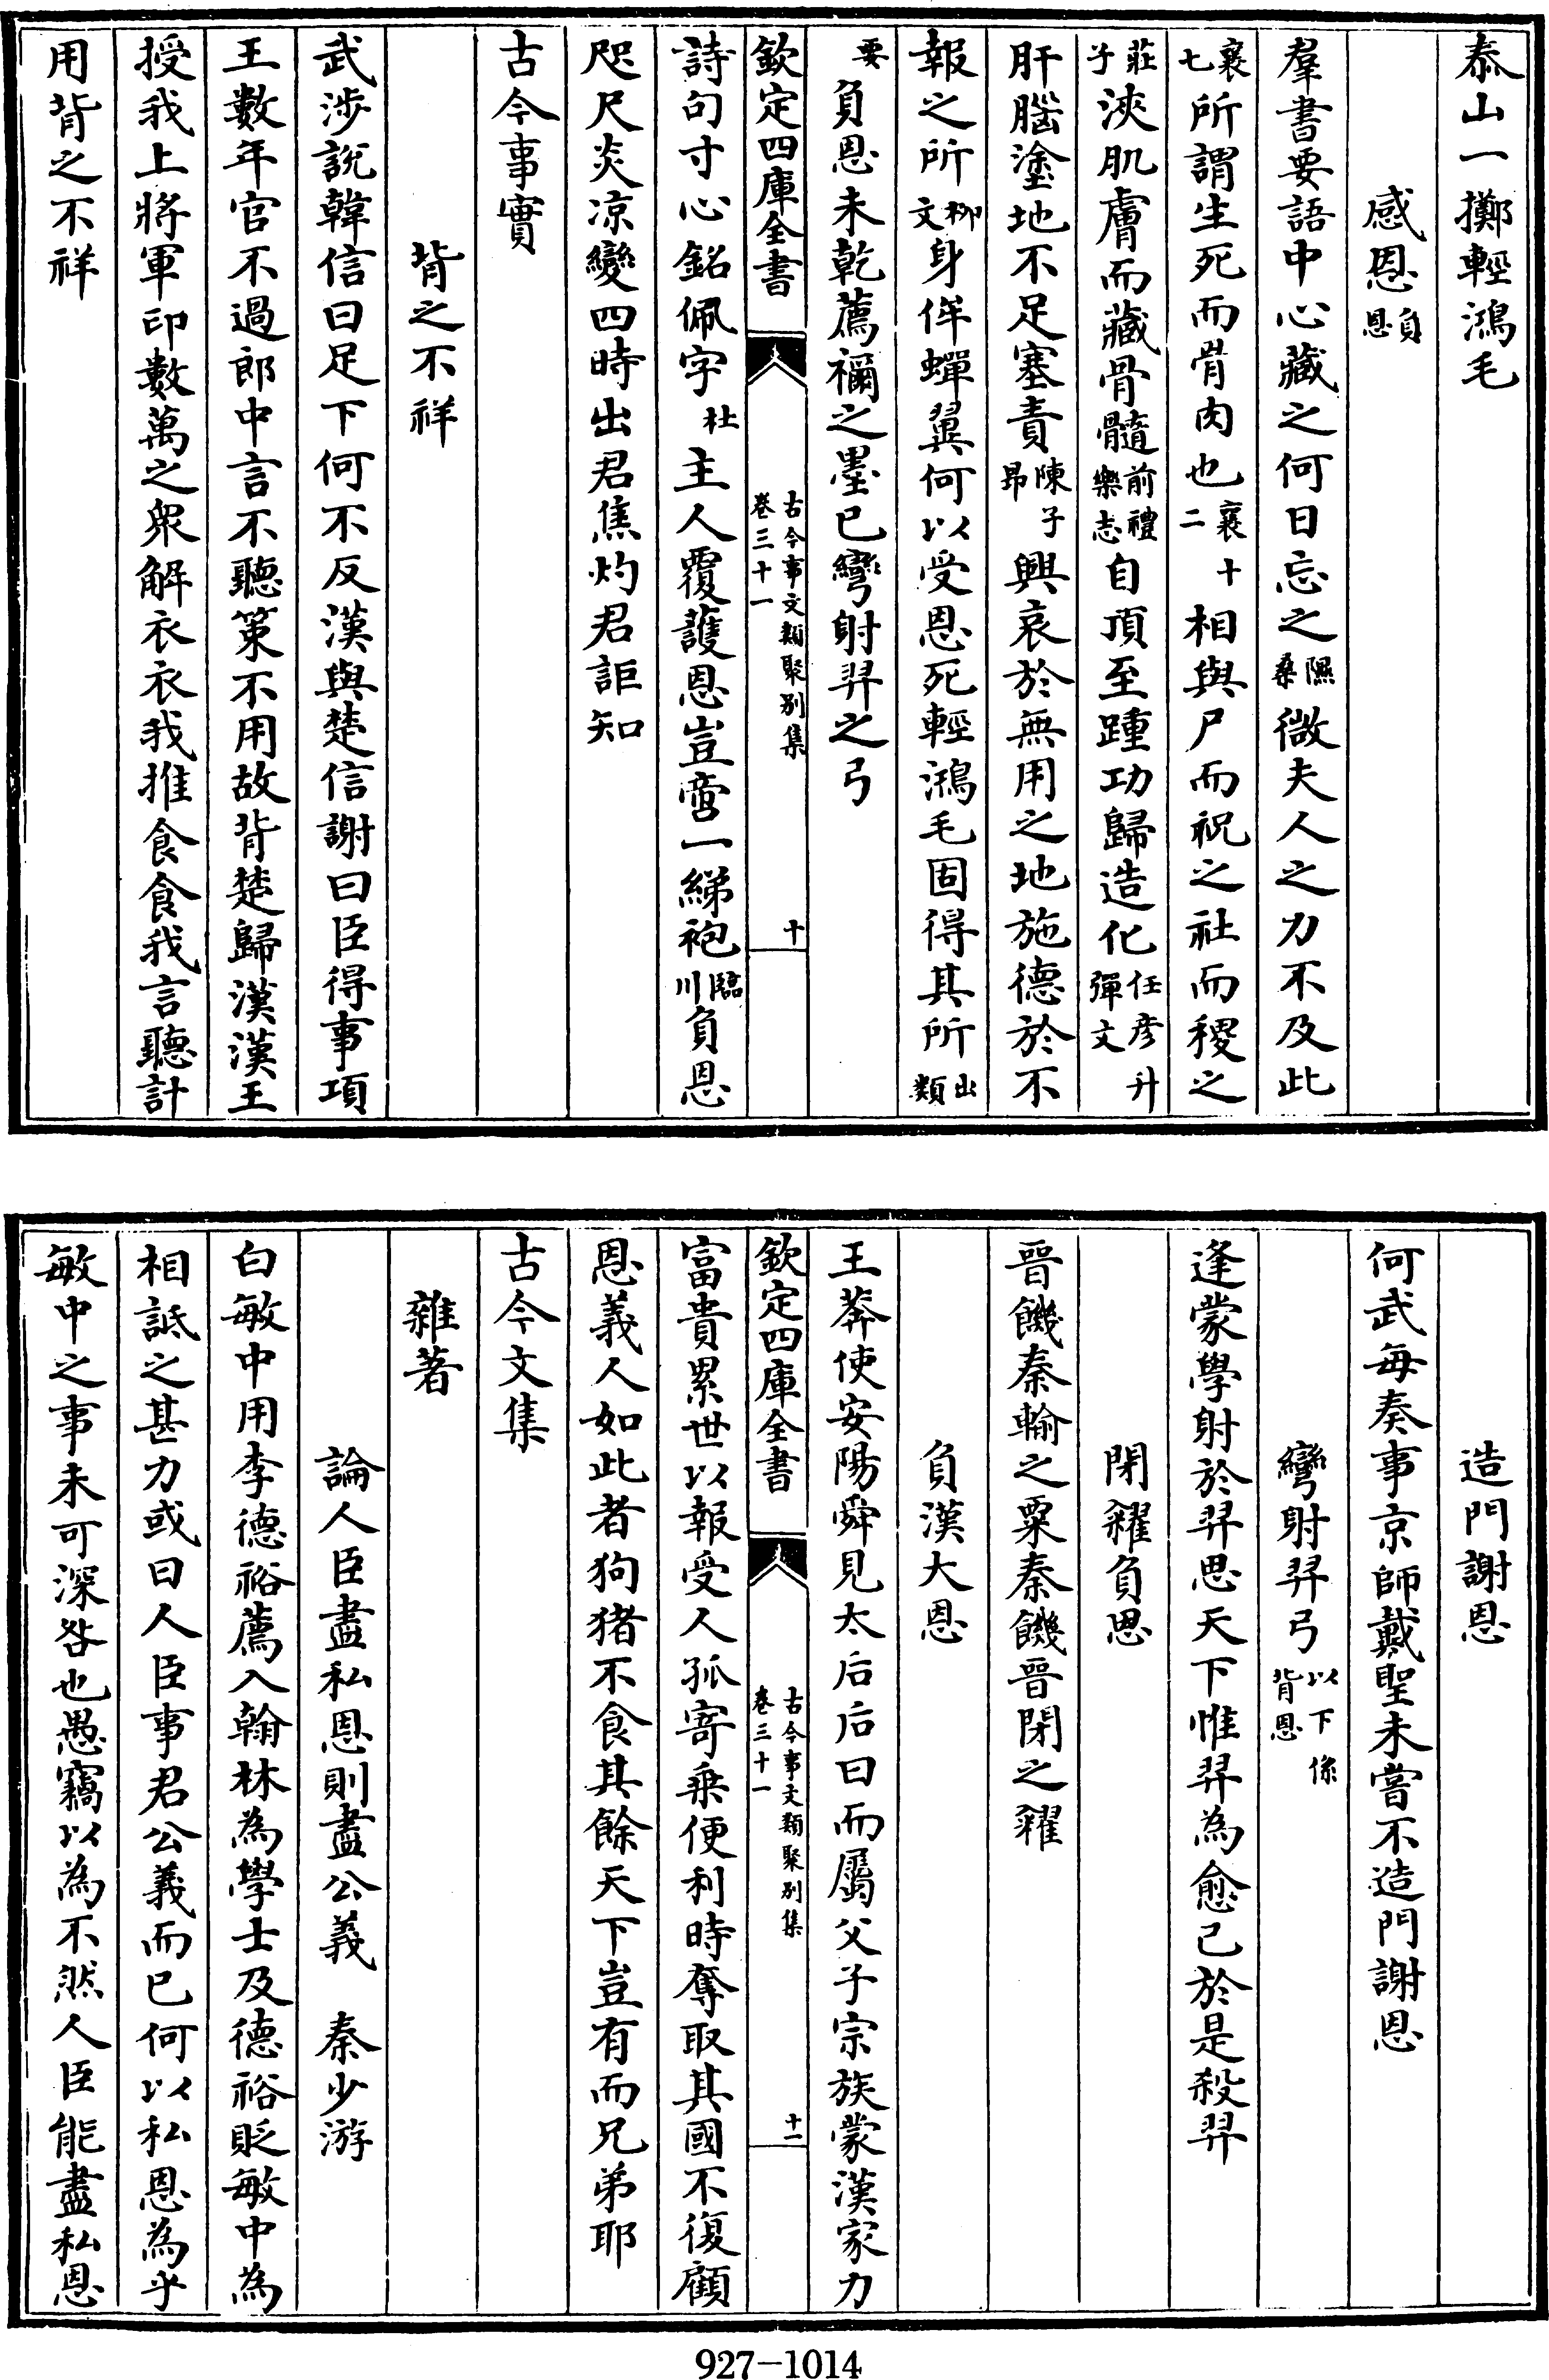 泰山一擲輕鴻毛
感恩負恩
羣書要語中心藏之何日忘之隰桑微夫人之力不及此
襄七所謂生死而骨肉也襄十二相與尸而祝之社而稷之
莊子浹肌膚而藏骨髓前禮樂志自頂至踵功歸造化任彦升彈文
肝腦塗地不足塞責陳子昂興哀於無用之地施德於不
報之所柳文身侔蟬翼何以受恩死輕鴻毛固得其所出類
要負恩未乾薦禰之墨已彎射羿之弓
欽定四庫全書
古今事文類聚別集
卷三十一
十
詩句寸心銘佩字杜主人覆護恩豈啻一綈袍臨川負恩
咫尺炎凉變四時出君焦灼君詎知
古今事實
背之不祥
武涉說韓信曰足下何不反漢與楚信謝曰臣得事項
王數年官不過郎中言不聽策不用故背楚歸漢漢王
授我上將軍印數萬之衆解衣衣我推食食我言聽計
用背之不祥
造門謝恩
何武每奏事京師戴聖未嘗不造門謝恩
彎射羿弓以下係背恩
逢蒙學射於羿思天下惟羿為愈己於是殺羿
閉糴負恩
晉饑秦輸之粟秦饑晉閉之糴
負漢大恩
王莽使安陽舜見太后后曰而屬父子宗族蒙漢家力
欽定四庫全書
古今事文類聚別集
卷三十一
十一
富貴累世以報受人孤寄乗便利時奪取其國不復顧
恩義人如此者狗猪不食其餘天下豈有而兄弟耶
古今文集
雜著
論人臣盡私恩則盡公義 秦少游
白敏中用李德裕薦入翰林為學士及德裕貶敏中為
相詆之甚力或曰人臣事君公義而已何以私恩為乎
敏中之事未可深咎也愚竊以為不然人臣能盡私恩
927-1014